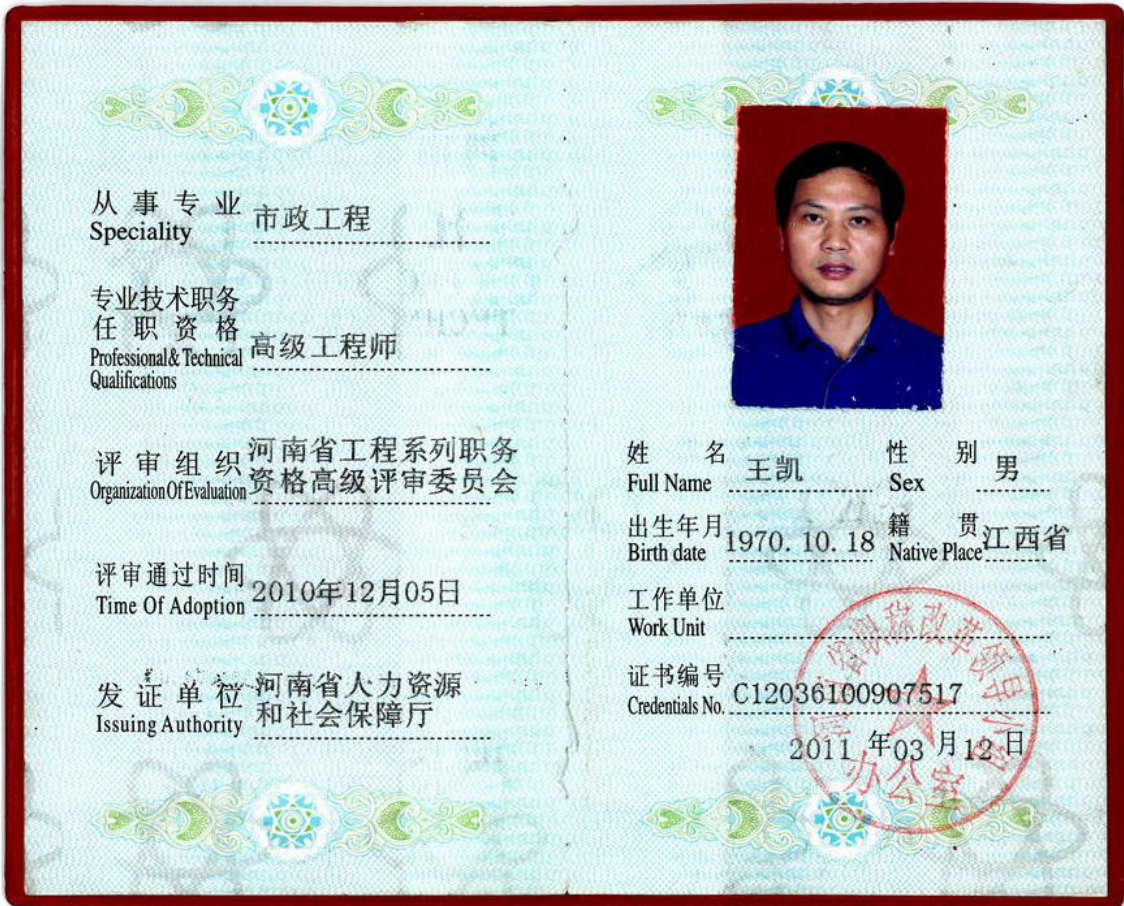 从事专业
Speciality
市政工程
专业技术职务
任职资格
Professional&Technical
Qualifications
高级工程师
评审组织
Organization Of Evaluation
河南省工程系列职务
资格高级评审委员会
评审通过时间
Time Of Adoption
2010年12月05日
发证单位
Issuing Authority
河南省人力资源
和社会保障厅
姓名
Full Name
王凯
性别
Sex
男
出生年月
Birth date
1970.10.18
籍贯
Native Place
江西省
工作单位
Work Unit
证书编号
Credentials No.
C12036100907517
2011年03月12日
省职称改革领导小
办公室